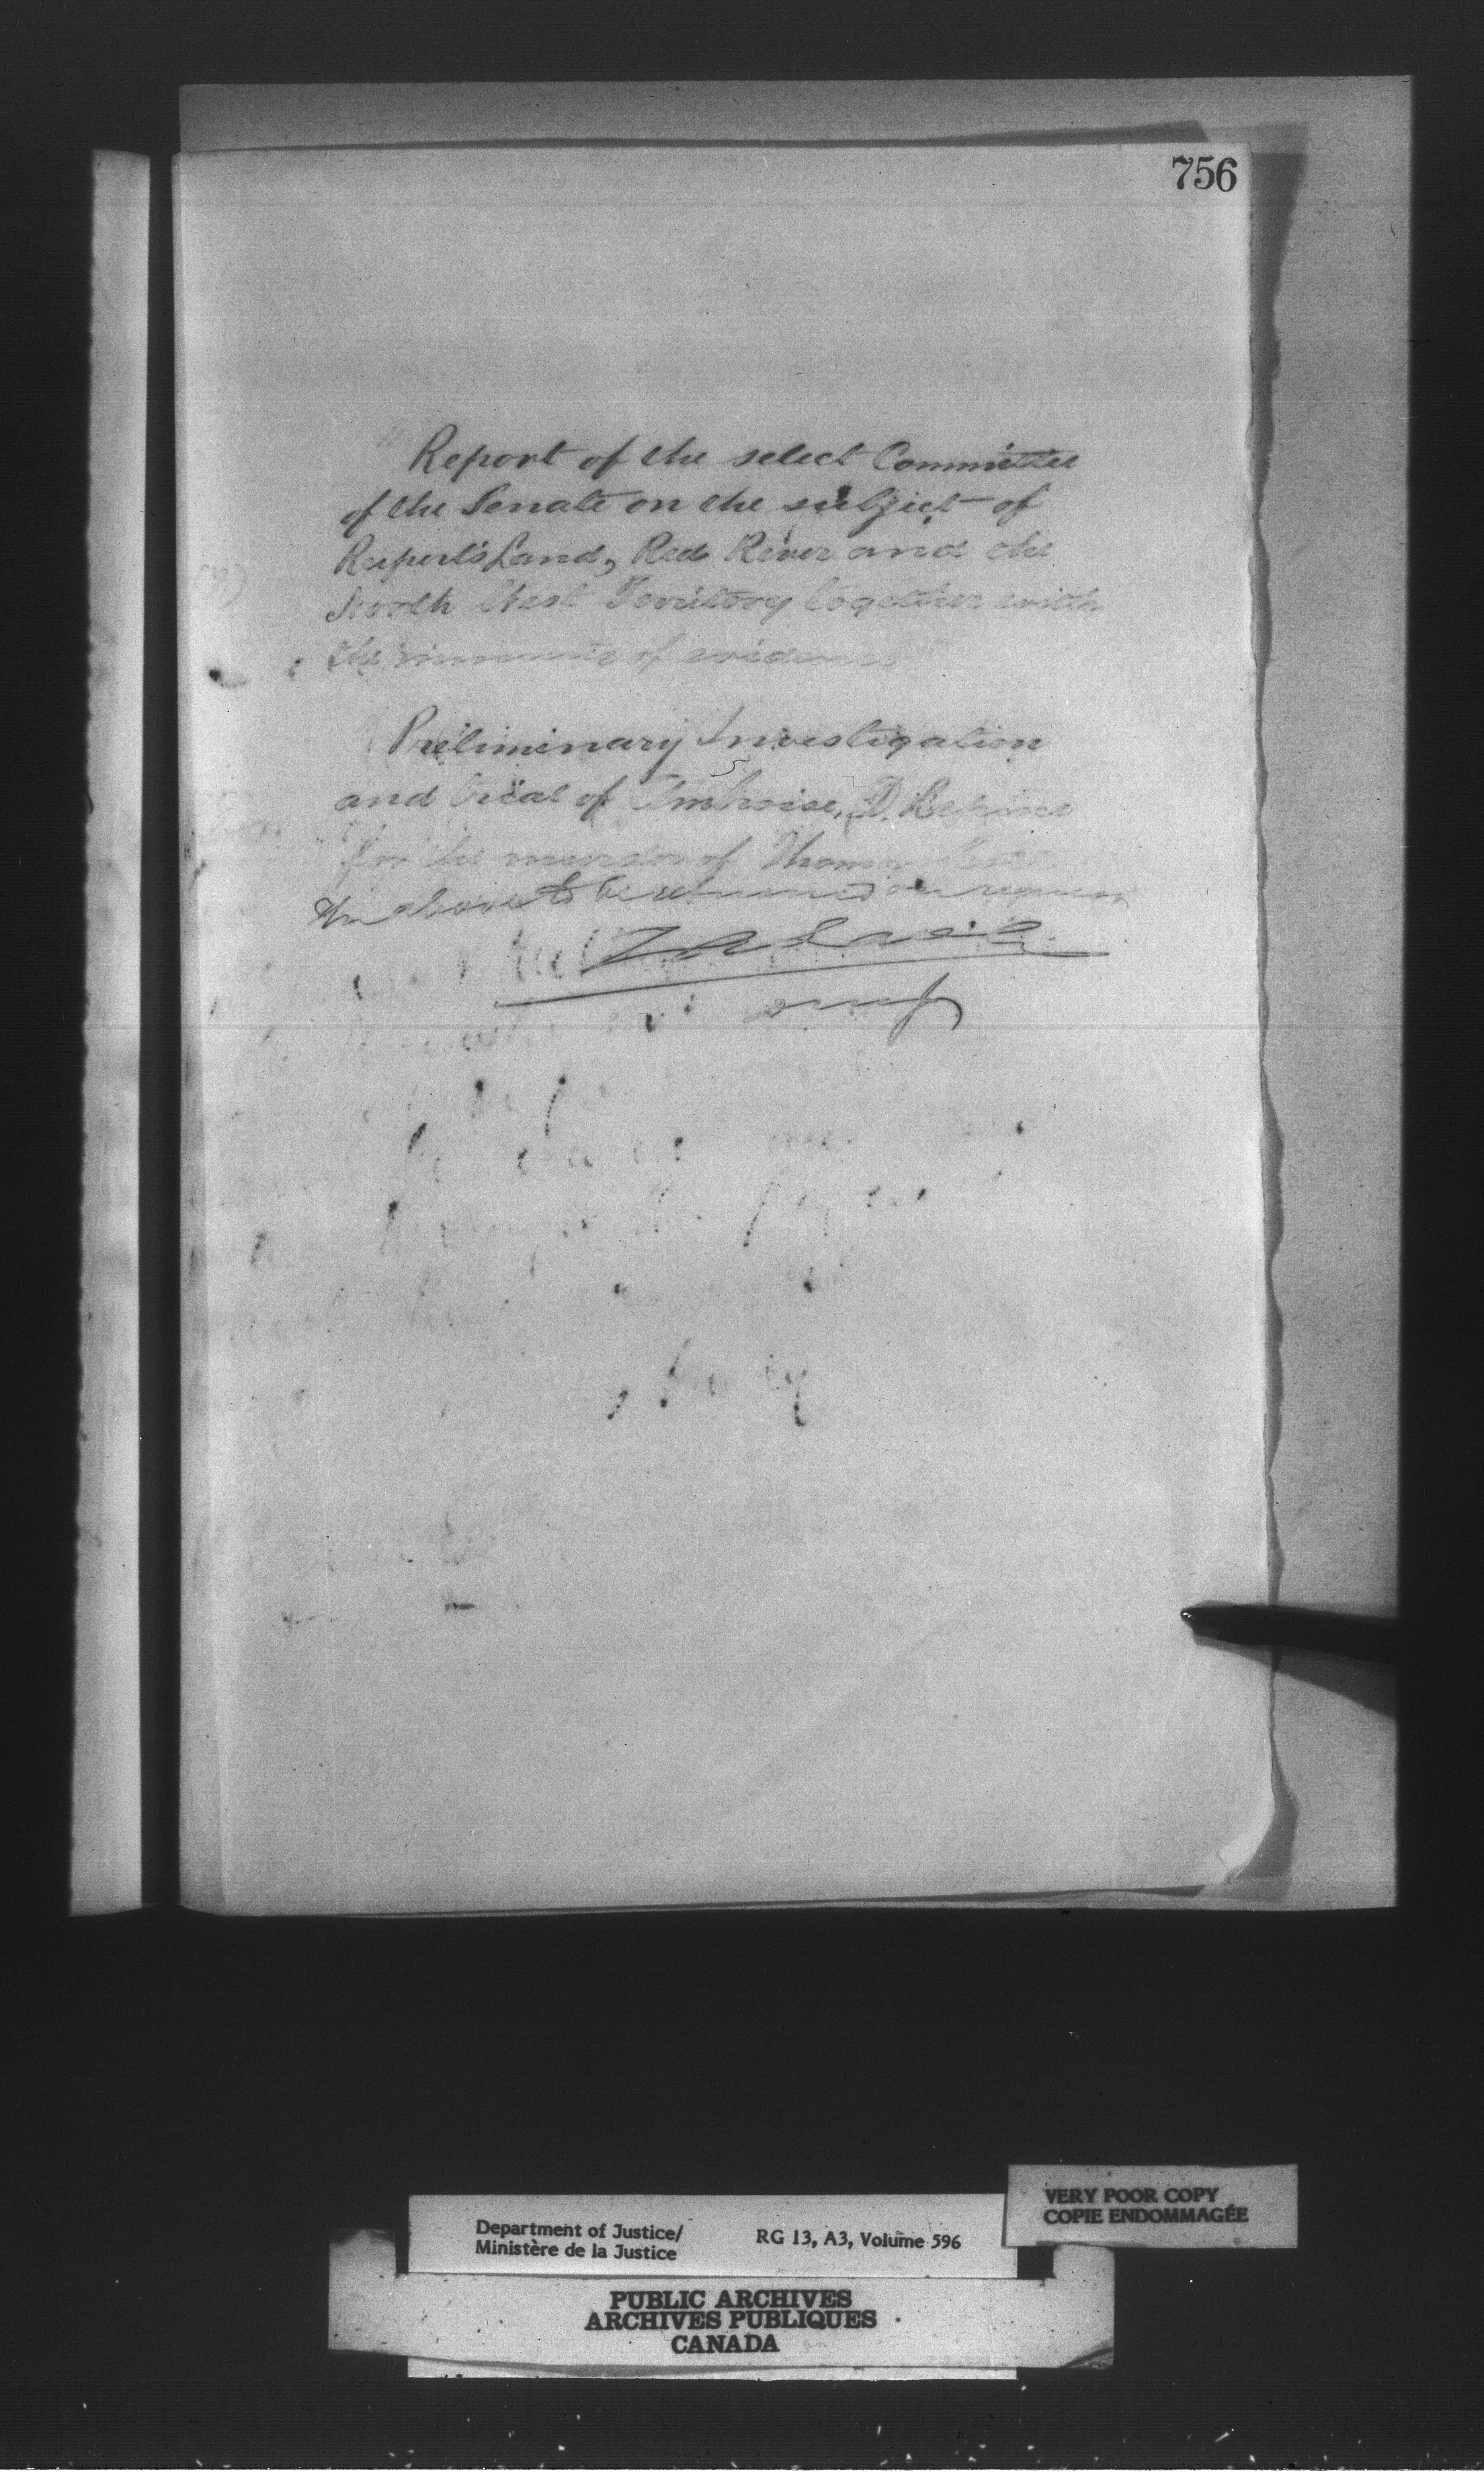 756
Report of the select Committee
of the Senate on the subject of
Rupert's Land, Red River and the
North West Territory together with
the minutes of evidence
Preliminary Investigation
and trial of Ambroise, D. Lepine
for the murder of Thomas Scott
The above to be returned on request
VERY POOR COPY
COPIE ENDOMMAGÉE
Department of Justice/
Ministère de la Justice
RG 13, A3, Volume 596
PUBLIC ARCHIVES
ARCHIVES PUBLIQUES
CANADA